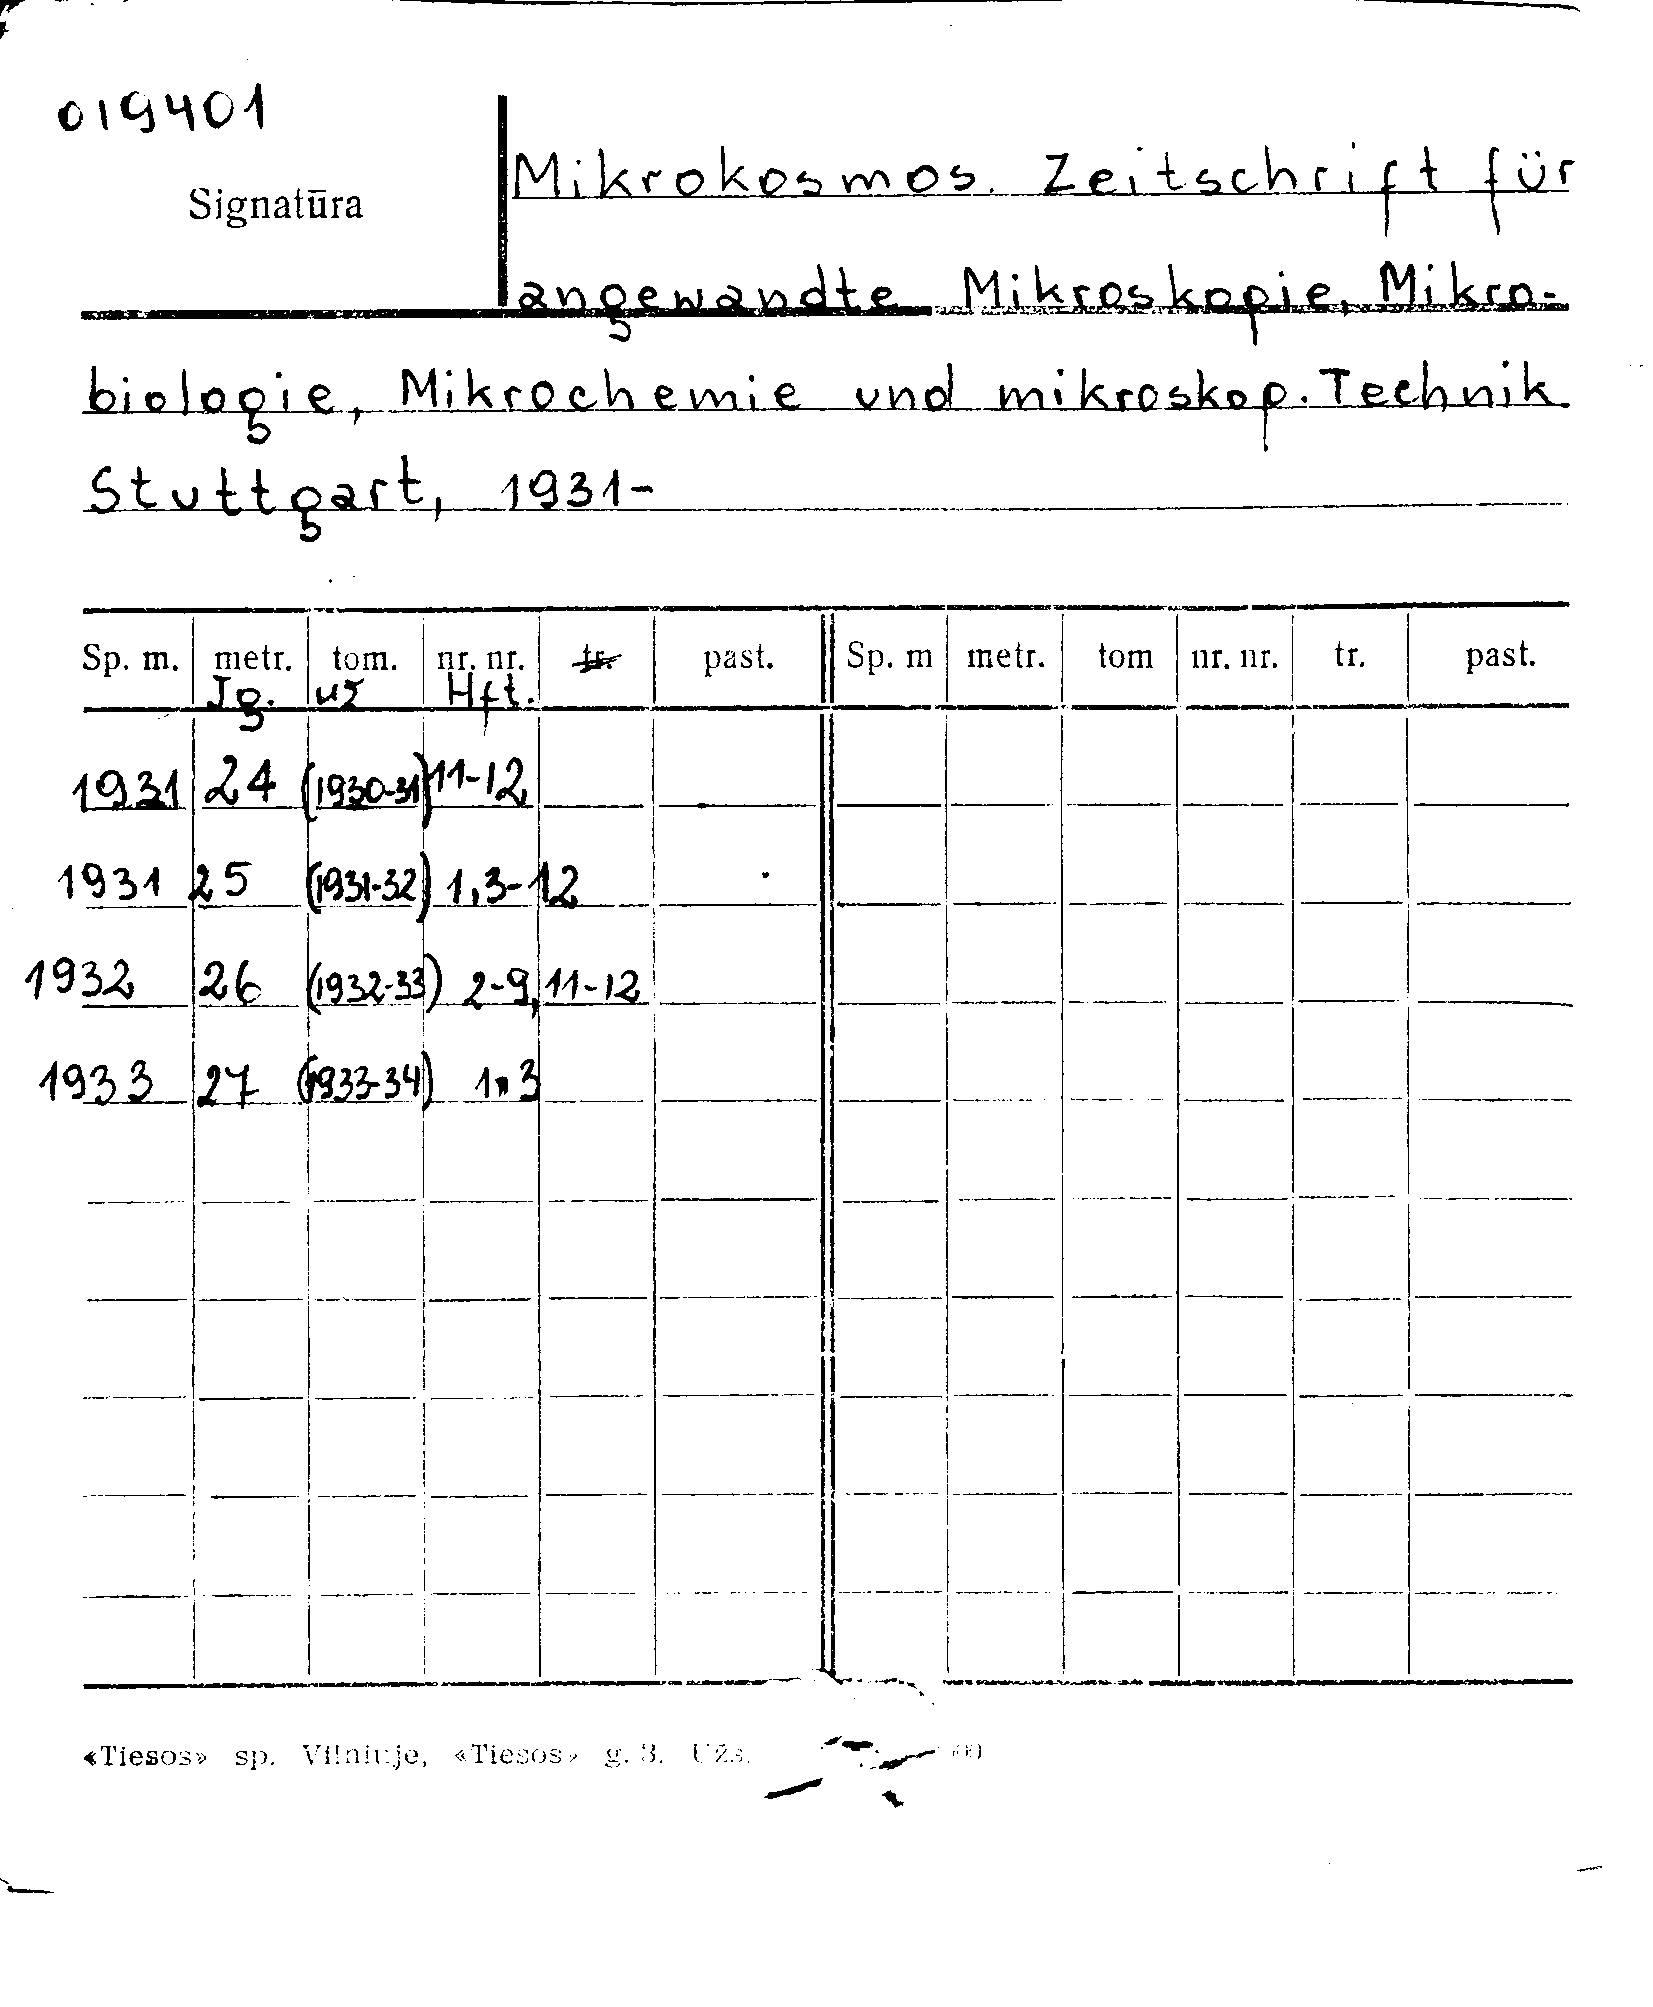 019401
Signatūra
Mikrokosmos. Zeitschrift für
angewandte Mikroskopie, Mikro-
biologie, Mikrochemie und mikroskop. Technik
Stuttgart, 1931-
Sp. m. metr. tom. nr. nr. tr. past. Sp. m metr. tom nr. nr. tr. past.
Jg. už Hft.
1931 24 (1930-31) 11-12
1931 25 (1931-32) 1,3-12
1932 26 (1932-33) 2-9, 11-12
1933 27 (1933-34) 1, 3
«Tiesos» sp. Vilniuje, «Tiesos» g. 8. Užs.